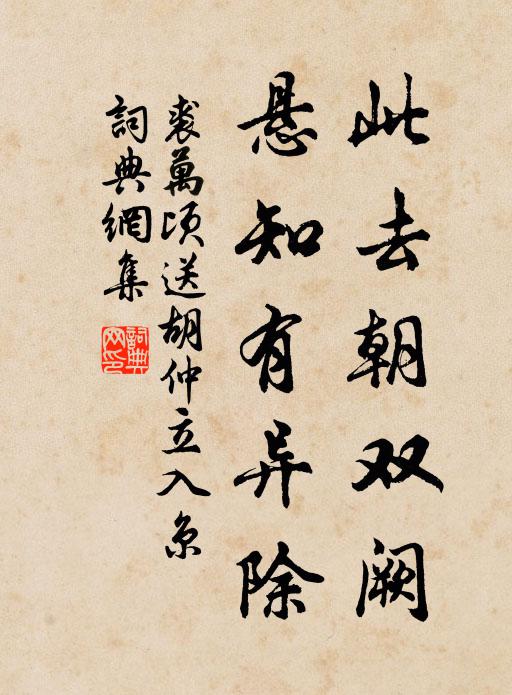 此去朝双阙
悬知有异除
裘萬顷送胡仲立入京
詞典網集
詞典网印